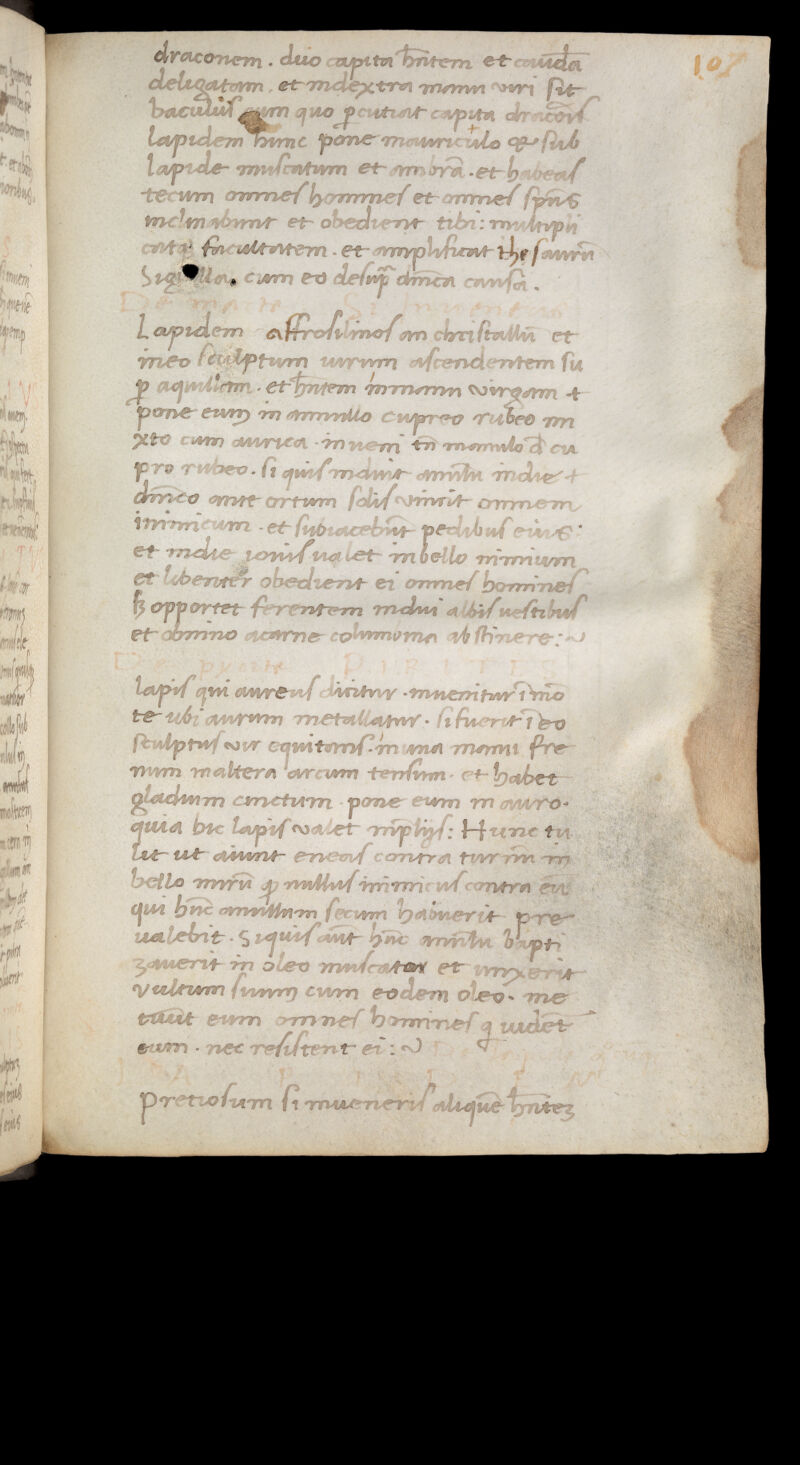 107
draconem . duo capita hñtem et caudã
deligatam . et in dextra manu viri sit
baculus cum quo p̱cutiat capita dracõis
lapidem hunc pone in auriculo & sub
lapide muscatum et ambrã . et habeas
tecum omnes homines et omnes sp̃us
inclinabunt et obedient tibi : multipli
catq facultatem . et amplificat thesaurũ
Sigilla . cum eo desup̃ dñica causa .
De Si inveneris
Lapidem affrosilinos an christallũ et
in eo sculptum uirum ascendentem su
p̱ aquilam . et hñtem in manu virgam +
pone eum in annullo cupreo rubeo mi
xto cum aurica . inveni tñ in anulo d̄ cu
pro rubeo . si quis induit anulũ in die +
dñico ante ortum solis vincit omnem
inimicum . et subiacebũt pedibus eius :
et in die iovis ualet in bello nimium
et libenter obedient ei omnes homines
sʒ opportet ferentem indui albis uestibus
et omnino a carne columbina abstinere :
De PIRITES
lapis qui aureus dicitur . invenitur ĩ mõ
te ubi aurum metallatur . si fuerit ĩ eo
sculptus vir equitans . in una manu fre
num in altera arcum tensum . et habet
gladium cinctum . pone eum in auro .
quia hic lapis valet in p̄lijs : Hunc tu
lit ut aiunt eneas contra turnũ in
bello mirũ q̱ nullus inimicus contra eũ
qui hũc annullum secum habuerit pre
ualebit . Si quis aũt hũc anulũ bapti
zaverit in oleo muscator et unxerit
vultum suum cum eodem oleo . me
tuũt eum omnes homines q̱ uidẽt
eum . nec resistent ei :
Pretiosum si inueneris aliquẽ hñteʒ